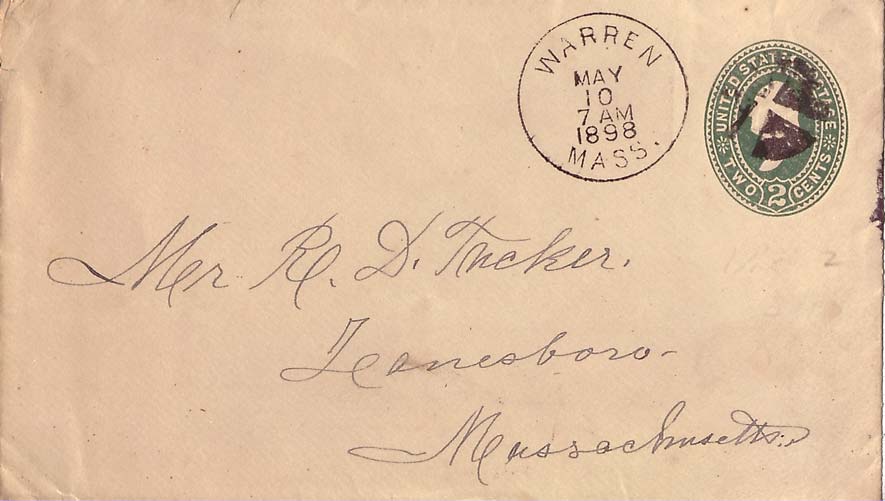 WARREN
MAY
10
7 AM
1898
MASS.
UNITED STATES
TWO 2 CENTS
Mr R. D. Tucker.
Lanesboro-
Massachusetts.
2